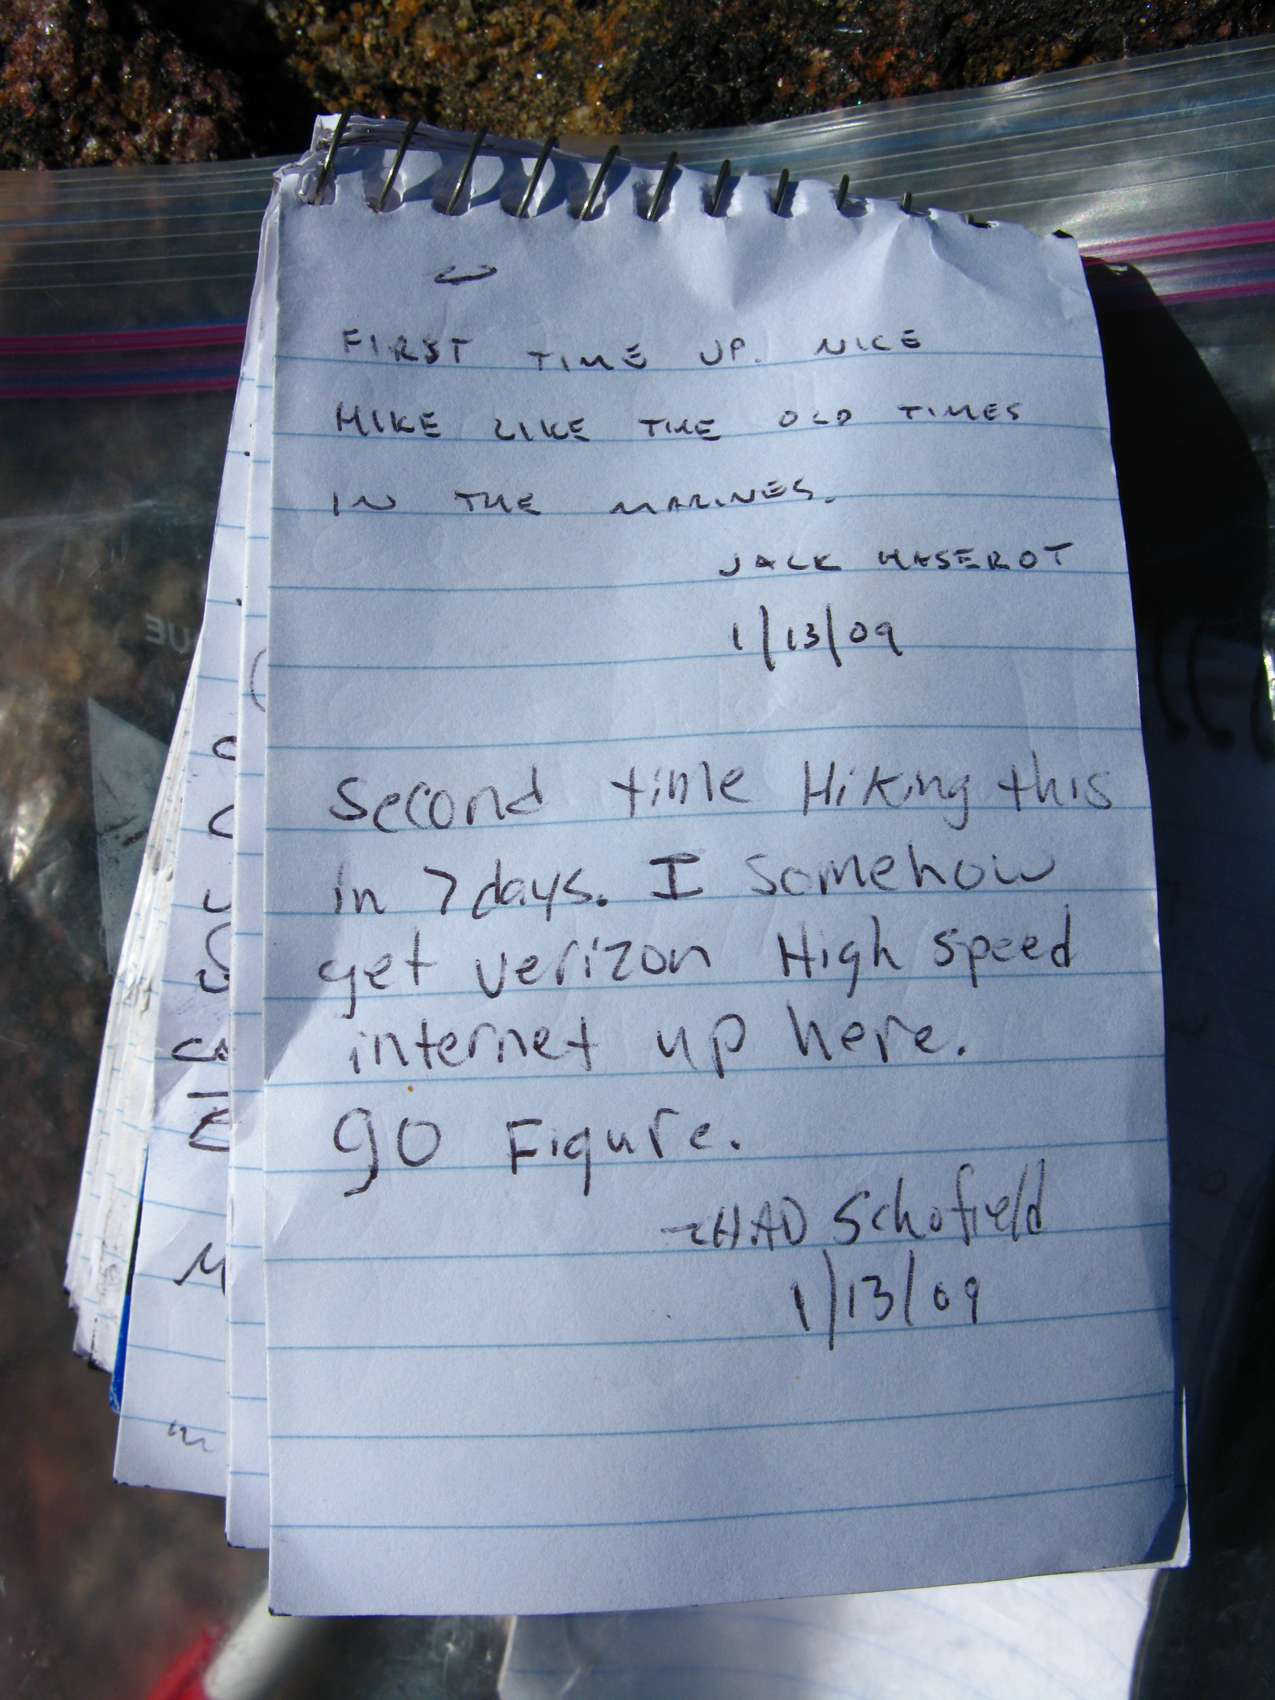 FIRST TIME UP. NICE
HIKE LIKE THE OLD TIMES
IN THE MARINES.
JACK HASEROT
1/13/09
Second time Hiking this
in 7 days. I somehow
get verizon High speed
internet up here.
go Figure.
-CHAD Schofield
1/13/09